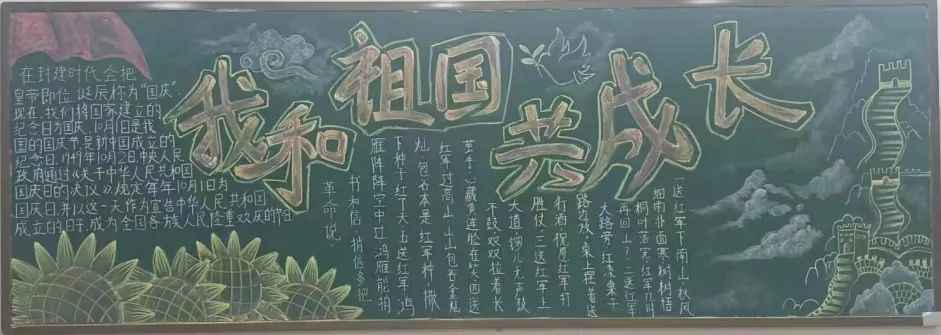 我和祖国共成长
在封建时代会把
皇帝即位、诞辰称为“国庆”
现在,我们将国家建立的
纪念日为国庆,10月1日是我
国的国庆节,是新中国成立的
纪念日。1949年10月2日中央人民
政府通过《关于中华人民共和国
国庆日的决议》规定每年10月1日为
国庆日,并以这一天作为宣告中华人民共和国
成立的日子,成为全国各族人民隆重欢庆的节日
一送红军下南山秋风
细雨扑面寒树树梧
桐叶落完红军几时
再回山?二送红军
大路旁红漆桌子
路边放桌上摆着送
行酒
三送红军上
大道锣儿无声鼓
不敲双双拉着长
茧手心藏黄连脸在笑四送
红军过高山山山包谷金灿
灿包谷本是红军种撒
下种子红了天五送红军鸿
雁阵阵空中过鸿雁能捎
书和信捎信多把
革命说